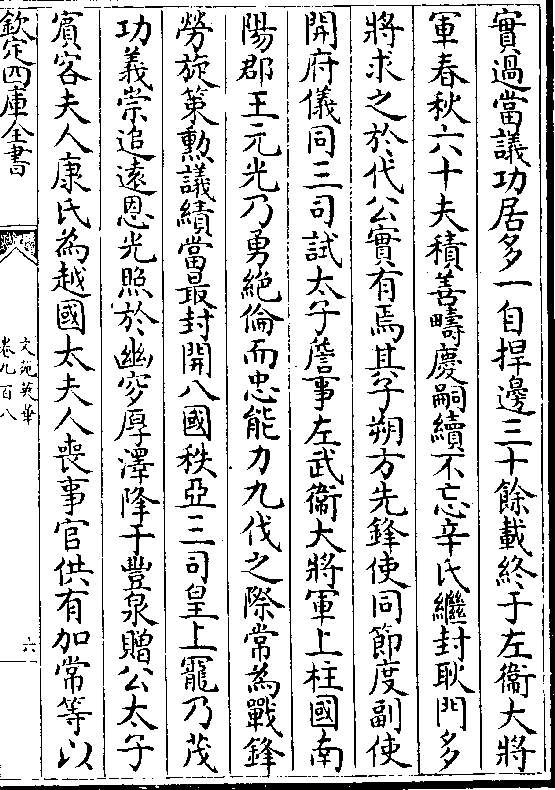 實過當議功居多一自捍邊三十餘載終于左衞大將
軍春秋六十夫積善疇慶嗣續不忘辛氏繼封耿門多
將求之於代公實有焉其子朔方先鋒使同節度副使
開府儀同三司試太子詹事左武衞大將軍上柱國南
陽郡王元光乃勇絶倫而忠能力九伐之際常為戰鋒
勞旋策勲議績當最封開八國秩亞三司皇上寵乃茂
功義崇追遠恩光照於幽穸厚澤降于豐泉贈公太子
賓客夫人康氏為越國太夫人喪事官供有加常等以
欽定四庫全書
文苑英華
卷九百八
六